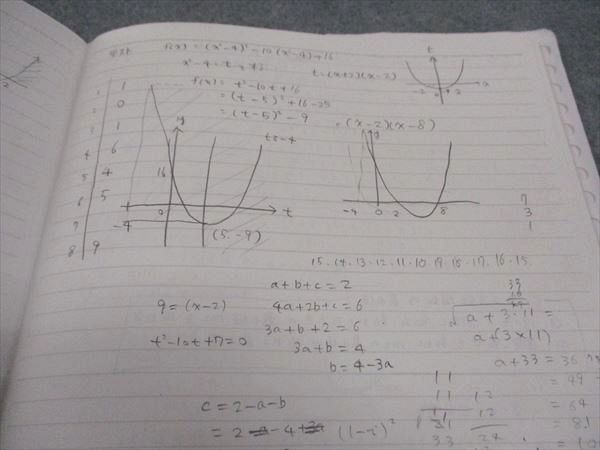 テスト f(x) = (x²-4)² - 10(x²-4) + 16
x²-4 = t
t = (x+2)(x-2)
f(x) = t² - 10t + 16
= (t-5)² + 16 - 25
= (t-5)² - 9
t
-2 0 2
1 1
2 0
3 1
4 6
5 4
6 5
7
8 9
y
t≥-4
16
0 t
-4
(5, -9)
=(x-2)(x-8)
y
-4 0 2 8
7
3
1
15.14.13.12.11.10.19.18.17.16.15.
a+b+c=2
9=(x-2) 4a+2b+c=6
3a+b+2=6
t²-10t+7=0 3a+b=4
b=4-3a
c=2-a-b
=2-a-4+3a (1-
33
a+3·11=
a+(3×11)
a+33=36
=49
=64
=81
11 12
12
33 24